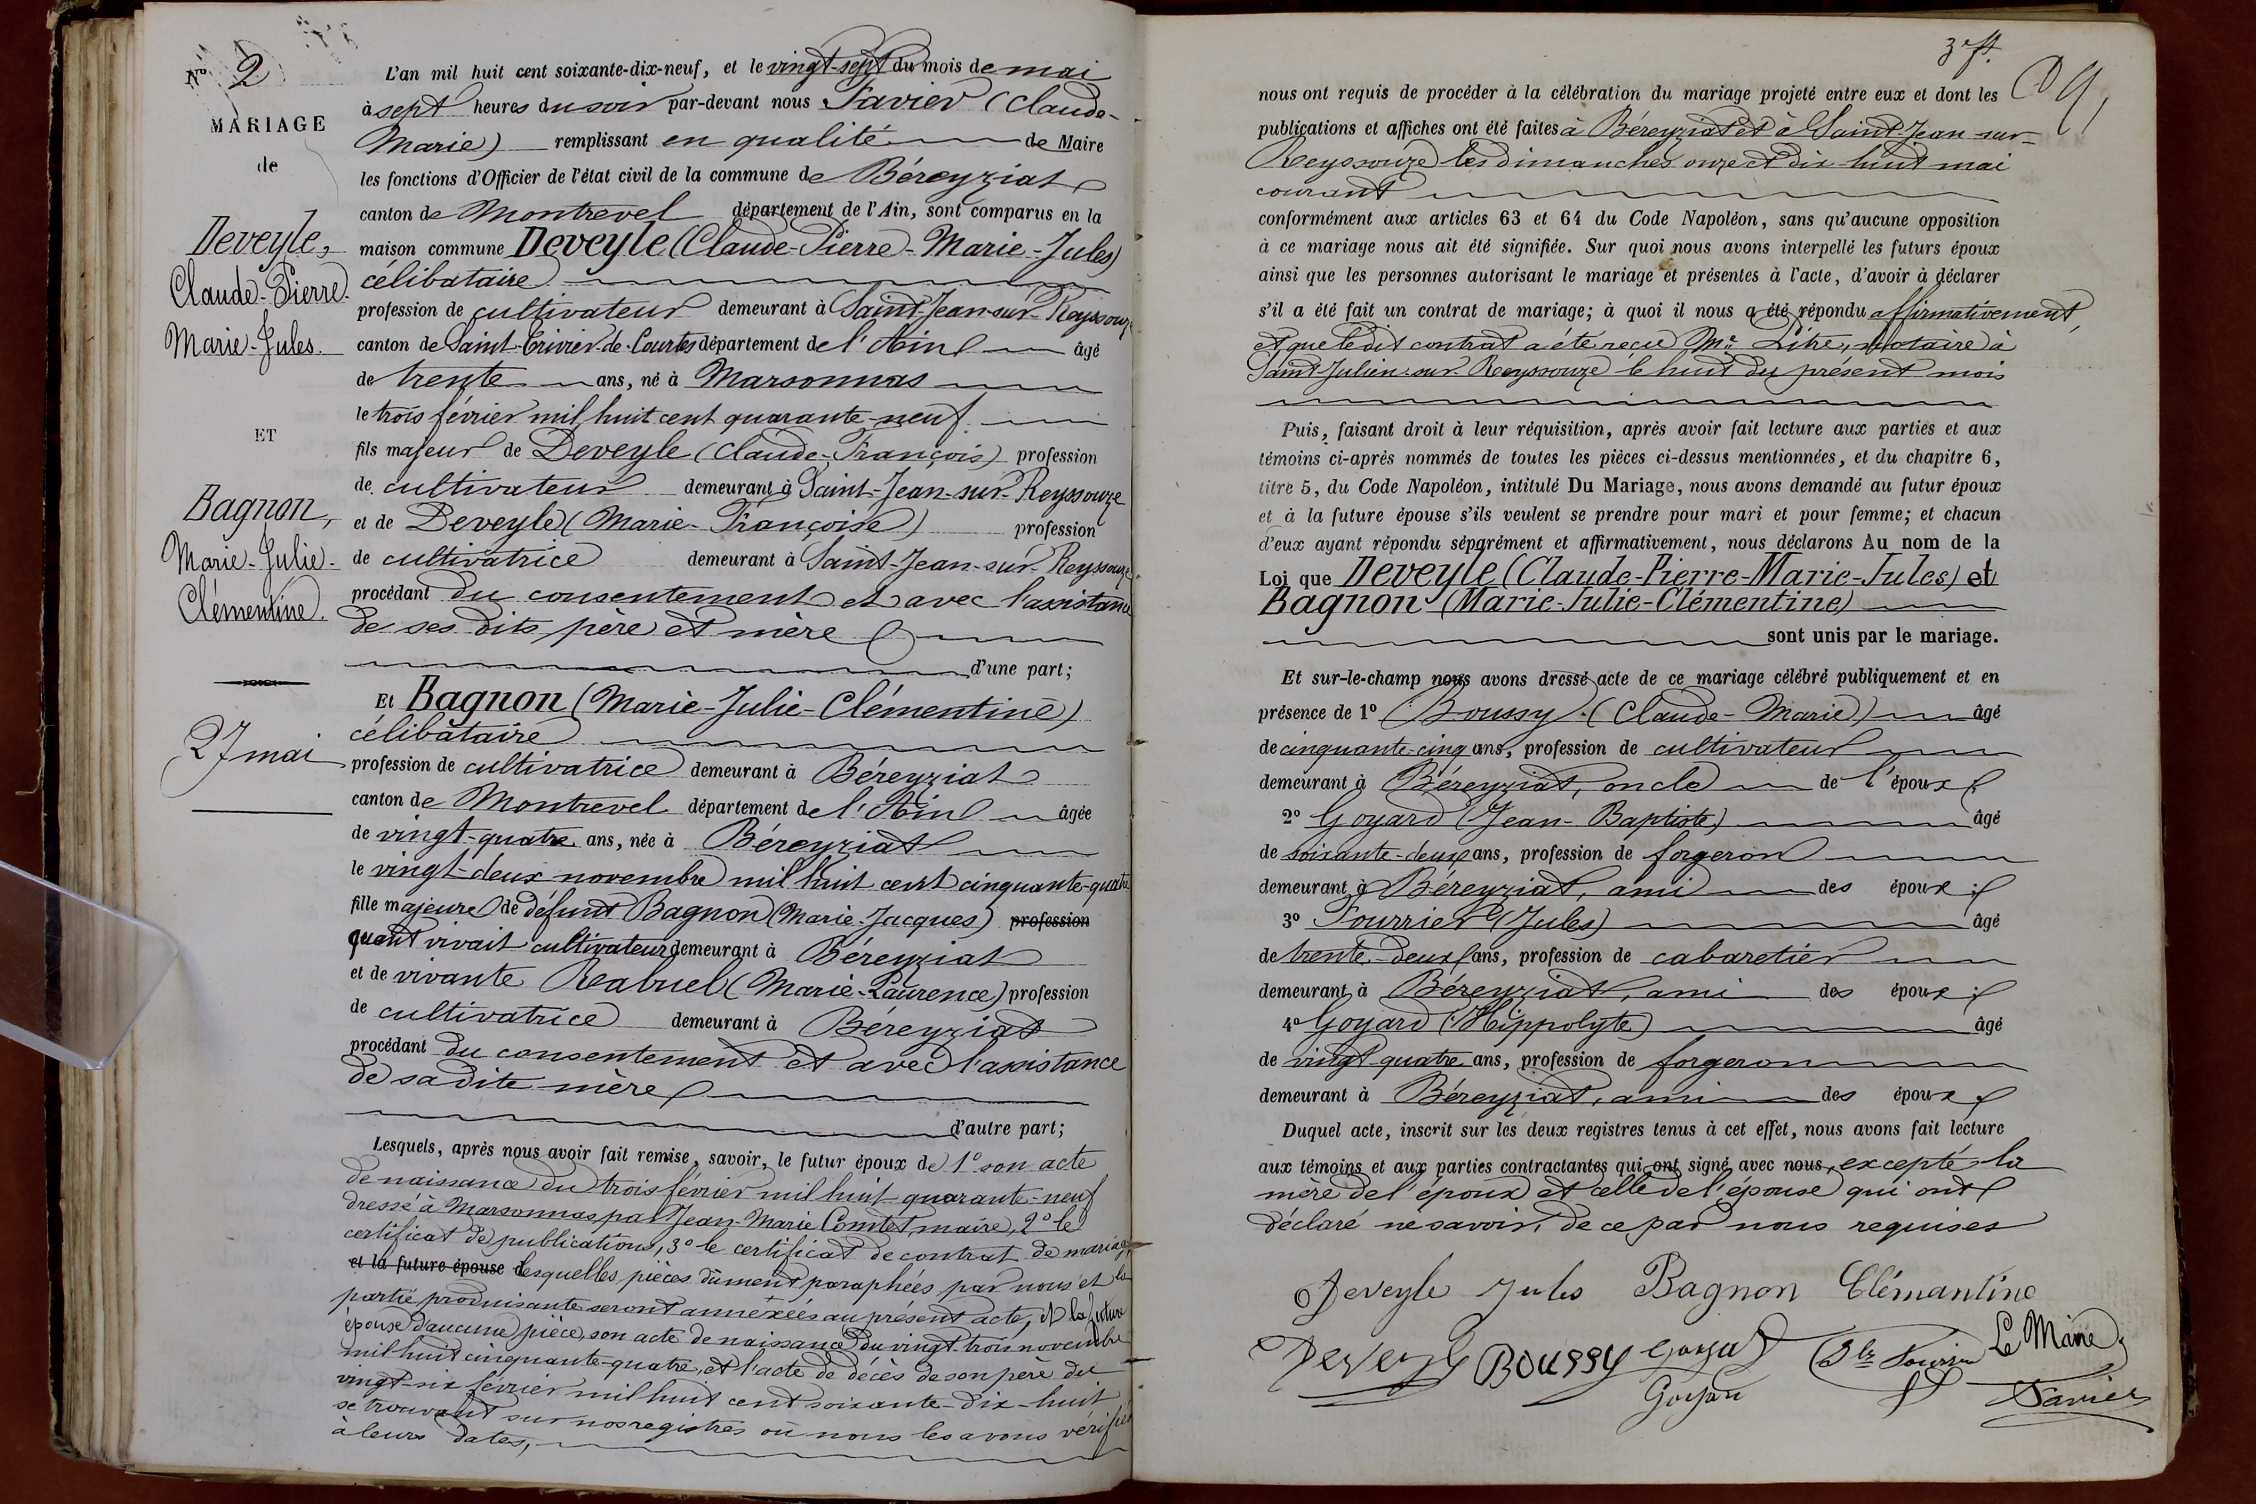 Nº 2
MARIAGE
de
Deveyle,
Claude-Pierre-
Marie-Jules.
ET
Bagnon,
Marie-Julie-
Clémentine.
27 mai
L'an mil huit cent soixante-dix-neuf, et le vingt-sept du mois de mai
à sept heures du soir par-devant nous Favier (Claude-
Marie) remplissant en qualité de Maire
les fonctions d'Officier de l'état civil de la commune de Béreyziat
canton de Montrevel département de l'Ain, sont comparus en la
maison commune Deveyle (Claude-Pierre-Marie-Jules)
célibataire
profession de cultivateur demeurant à Saint-Jean-sur-Reyssouze
canton de Saint-Trivier-de-Courtes département de l'Ain âgé
de trente ans, né à Marsonnas
le trois février mil huit cent quarante-neuf
fils majeur de Deveyle (Claude-François) profession
de cultivateur demeurant à Saint-Jean-sur-Reyssouze
et de Deveyle (Marie-Françoise) profession
de cultivatrice demeurant à Saint-Jean-sur-Reyssouze
procédant du consentement et avec l'assistance
de ses dits père et mère
d'une part;
Et Bagnon (Marie-Julie-Clémentine)
célibataire
profession de cultivatrice demeurant à Béreyziat
canton de Montrevel département de l'Ain âgée
de vingt-quatre ans, née à Béreyziat
le vingt-deux novembre mil huit cent cinquante-quatre
fille majeure de défunt Bagnon (Marie-Jacques) profession
quand vivait cultivateur demeurant à Béreyziat
et de vivante Reabuel (Marie-Laurence) profession
de cultivatrice demeurant à Béreyziat
procédant du consentement et avec l'assistance
de sa dite mère
d'autre part;
Lesquels, après nous avoir fait remise, savoir, le futur époux de 1º son acte
de naissance du trois février mil huit quarante-neuf
dressé à Marsonnas par Jean-Marie Comtet maire, 2º le
certificat de publications, 3º le certificat de contrat de mariage,
et la future épouse lesquelles pièces dûment paraphées par nous et la
partie produisante seront annexées au présent acte, et la future
épouse d'aucune pièce, son acte de naissance du vingt-trois novembre
mil huit cinquante-quatre, et l'acte de décès de son père du
vingt-six février mil huit cent soixante-dix-huit
se trouvant sur nos registres où nous les avons vérifiés
à leurs dates,
3e ft.
nous ont requis de procéder à la célébration du mariage projeté entre eux et dont les
publications et affiches ont été faites à Béreyziat et à Saint-Jean-sur-
Reyssouze les dimanches onze et dix huit mai
courant
conformément aux articles 63 et 64 du Code Napoléon, sans qu'aucune opposition
à ce mariage nous ait été signifiée. Sur quoi nous avons interpellé les futurs époux
ainsi que les personnes autorisant le mariage et présentes à l'acte, d'avoir à déclarer
s'il a été fait un contrat de mariage; à quoi il nous a été répondu affirmativement
et que le dit contrat a été reçu Me Litre, notaire à
Saint-Julien-sur-Reyssouze le huit du présent mois
Puis, faisant droit à leur réquisition, après avoir fait lecture aux parties et aux
témoins ci-après nommés de toutes les pièces ci-dessus mentionnées, et du chapitre 6,
titre 5, du Code Napoléon, intitulé Du Mariage, nous avons demandé au futur époux
et à la future épouse s'ils veulent se prendre pour mari et pour femme; et chacun
d'eux ayant répondu séparément et affirmativement, nous déclarons Au nom de la
Loi que Deveyle (Claude-Pierre-Marie-Jules) et
Bagnon (Marie-Julie-Clémentine)
sont unis par le mariage.
Et sur-le-champ nous avons dressé acte de ce mariage célébré publiquement et en
présence de 1º Boussy (Claude-Marie) âgé
de cinquante-cinq ans, profession de cultivateur
demeurant à Béreyziat, oncle de l'époux
2º Goyard (Jean-Baptiste) âgé
de soixante-deux ans, profession de forgeron
demeurant à Béreyziat, ami des époux;
3º Fourrier (Jules) âgé
de trente-deux ans, profession de cabaretier
demeurant à Béreyziat, ami des époux;
4º Goyard (Hippolyte) âgé
de vingt-quatre ans, profession de forgeron
demeurant à Béreyziat, ami des époux
Duquel acte, inscrit sur les deux registres tenus à cet effet, nous avons fait lecture
aux témoins et aux parties contractantes qui ont signé avec nous, excepté la
mère de l'époux et celle de l'épouse qui ont
déclaré ne savoir, de ce par nous requises
Deveyle Jules Bagnon Clémantine
Deveyle Boussy Goyard Jles Fourrier Le Maire,
Goyard Favier